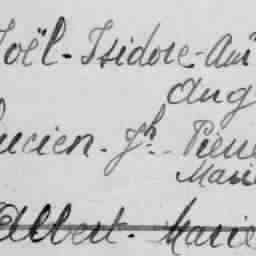 Joël-Isidore-Am
Aug
Lucien-Jh-Pierre
Marie
Albert-Marie